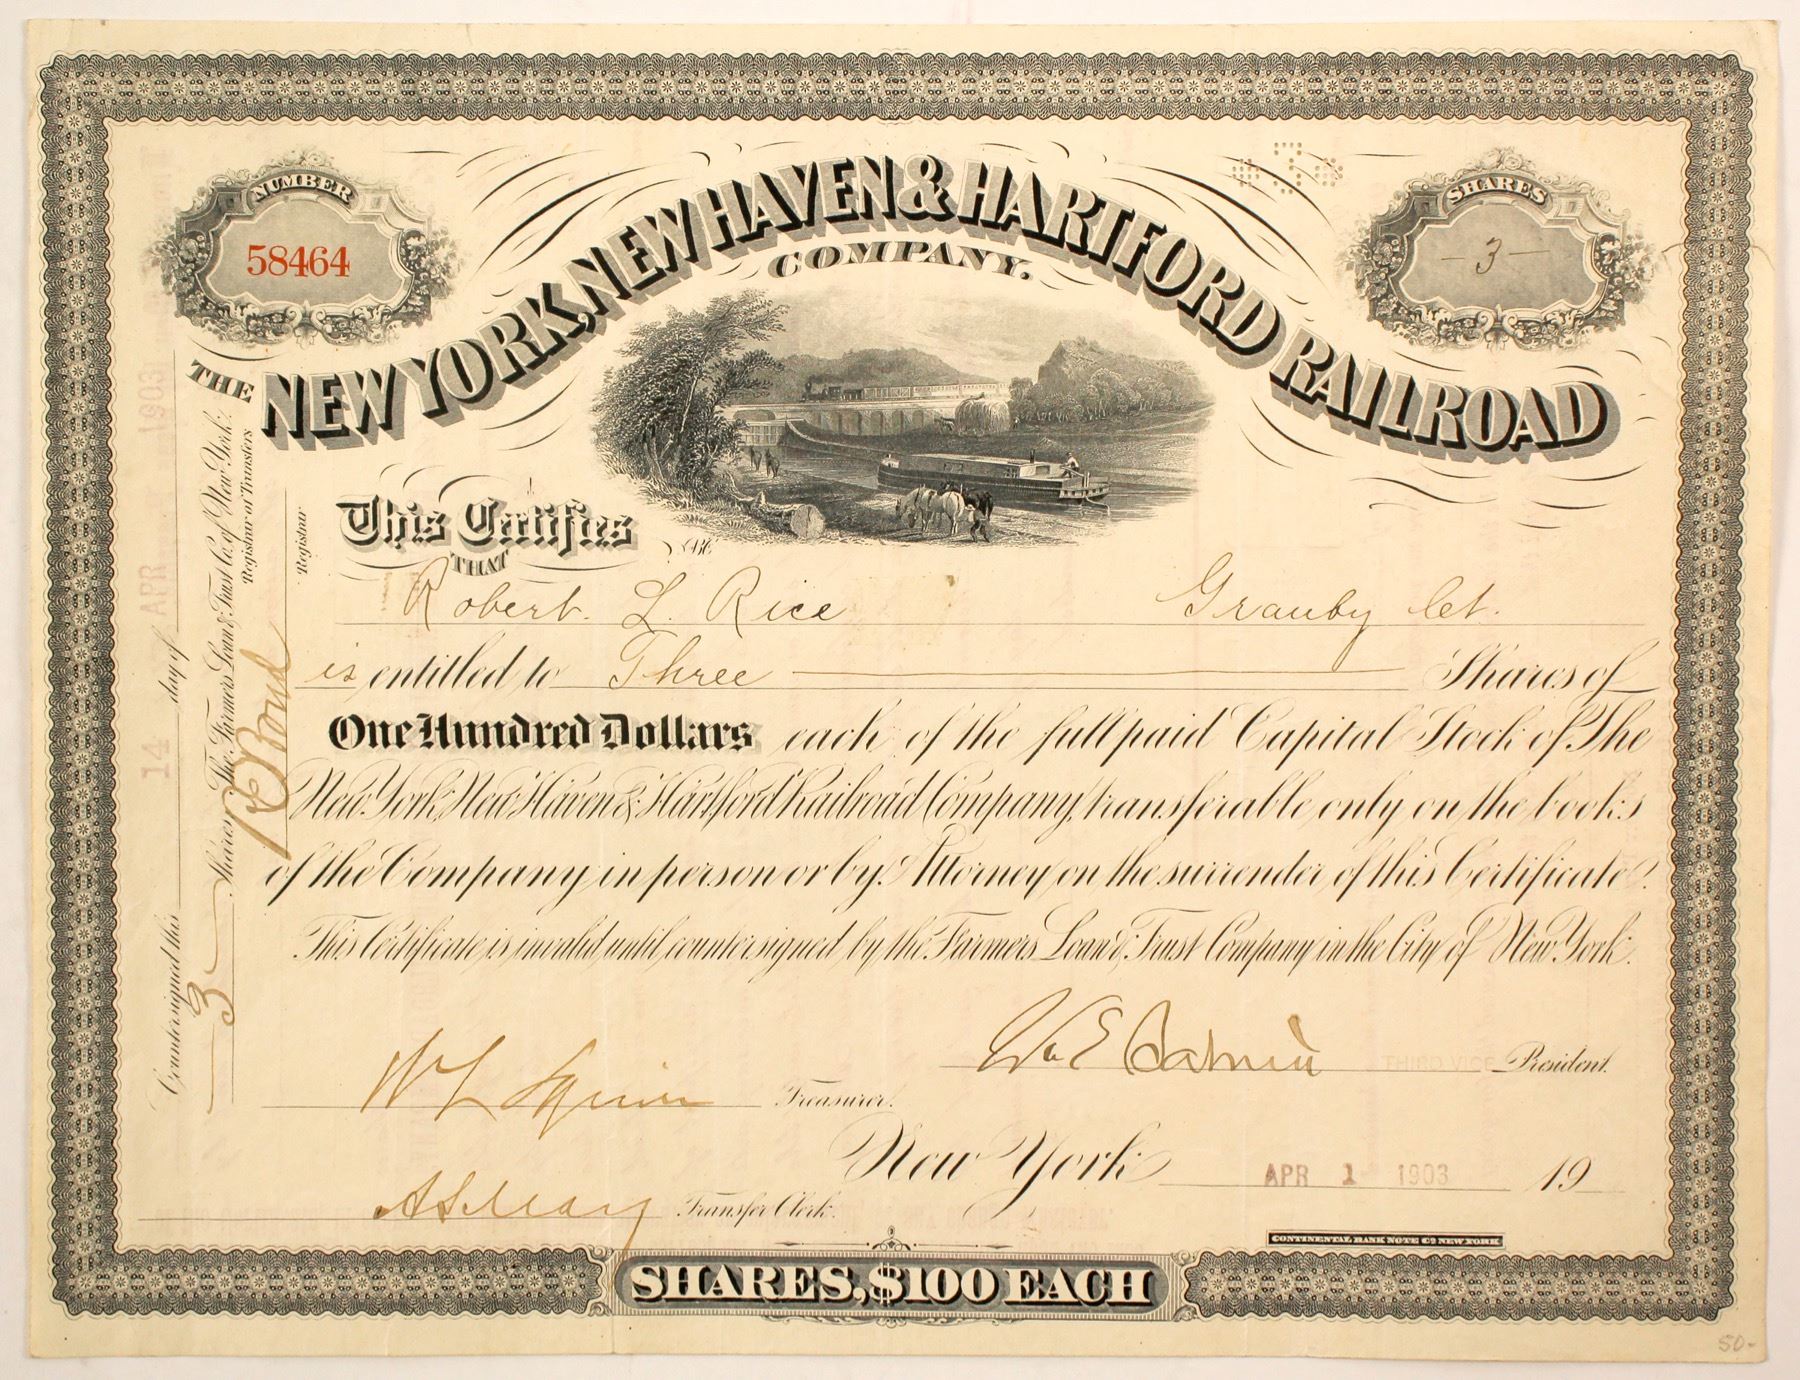 NUMBER
58464
SHARES
-3-
3
THE NEW YORK, NEW HAVEN & HARTFORD RAILROAD
COMPANY.
This Certifies
THAT
Robert. L. Rice Granby Ct.
is entitled to Three Shares of
One Hundred Dollars each of the full paid Capital Stock of The
New York, New Haven & Hartford Railroad Company, transferable only on the books
of the Company in person or by Attorney on the surrender of this Certificate.
This Certificate is invalid until countersigned by the Farmers Loan & Trust Company in the City of New York.
THIRD VICE President.
Treasurer.
New York APR 1 1903 19
Transfer Clerk.
CONTINENTAL BANK NOTE CO NEW YORK
SHARES, $100 EACH
50-
Countersigned this 14 day of APR 1903
3 Shares The Farmers Loan & Trust Co. of New York.
Registrar of Transfers
Registrar